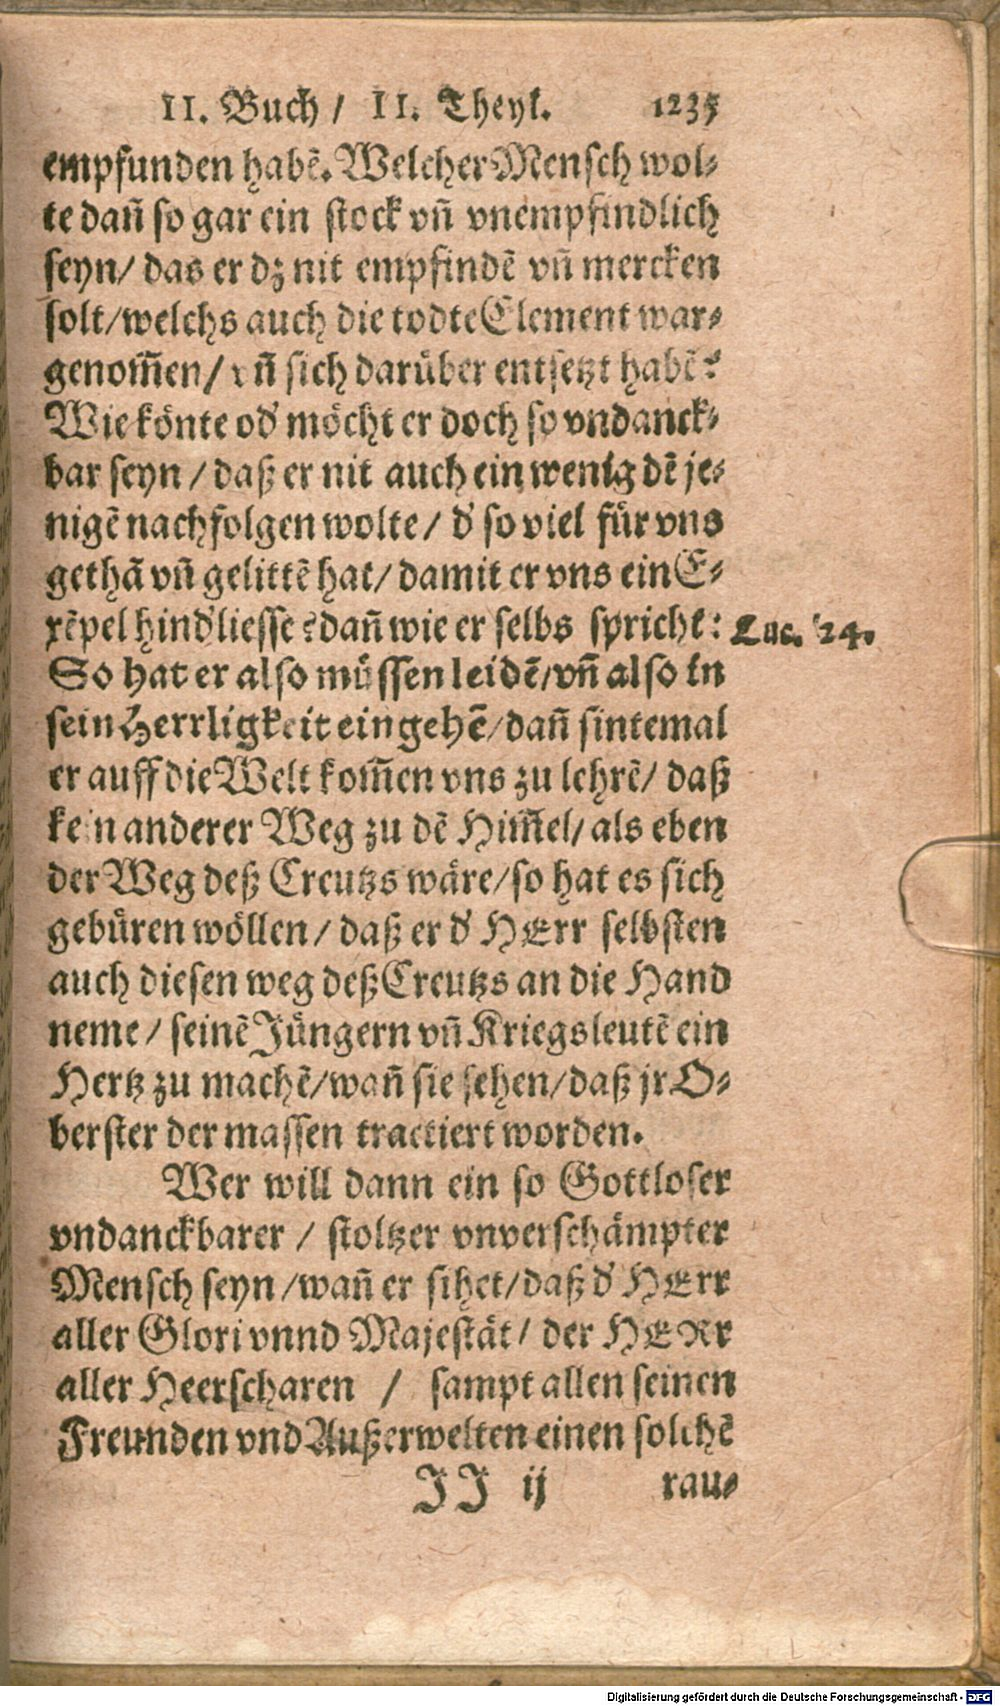 II. Buch / II. Theyl. 1235
empfunden habē. Welcher Mensch wol⸗
te dañ so gar ein stock vñ vnempfindlich
seyn / das er dz nit empfindē vñ mercken
solt / welchs auch die todte Element war⸗
genom̄en / vñ sich darüber entsetzt habē?
Wie könte od' möcht er doch so vndanck⸗
bar seyn / daß er nit auch ein wenig dē je⸗
nigē nachfolgen wolte / d' so viel für vns
gethā vñ gelittē hat / damit er vns ein E⸗
xēpel hind'liesse? dañ wie er selbs spricht: Luc. 24.
So hat er also müssen leidē / vñ also in
sein Herrligkeit eingehē / dañ sintemal
er auff die Welt kom̄en vns zu lehrē / daß
kein anderer Weg zu dē Him̄el / als eben
der Weg deß Creutzs wäre / so hat es sich
gebüren wöllen / daß er d' HErr selbsten
auch diesen weg deß Creutzs an die Hand
neme / seinē Jüngern vñ Kriegsleutē ein
Hertz zu machē / wañ sie sehen / daß jr O⸗
berster der massen tractiert worden.
Wer will dann ein so Gottloser
vndanckbarer / stoltzer vnverschämpter
Mensch seyn / wañ er sihet / daß d' HErr
aller Glori vnnd Majestät / der HERr
aller Heerscharen / sampt allen seinen
Freunden vnd Außerwelten einen solchē
JJ ij rau⸗
Digitalisierung gefördert durch die Deutsche Forschungsgemeinschaft - DFG